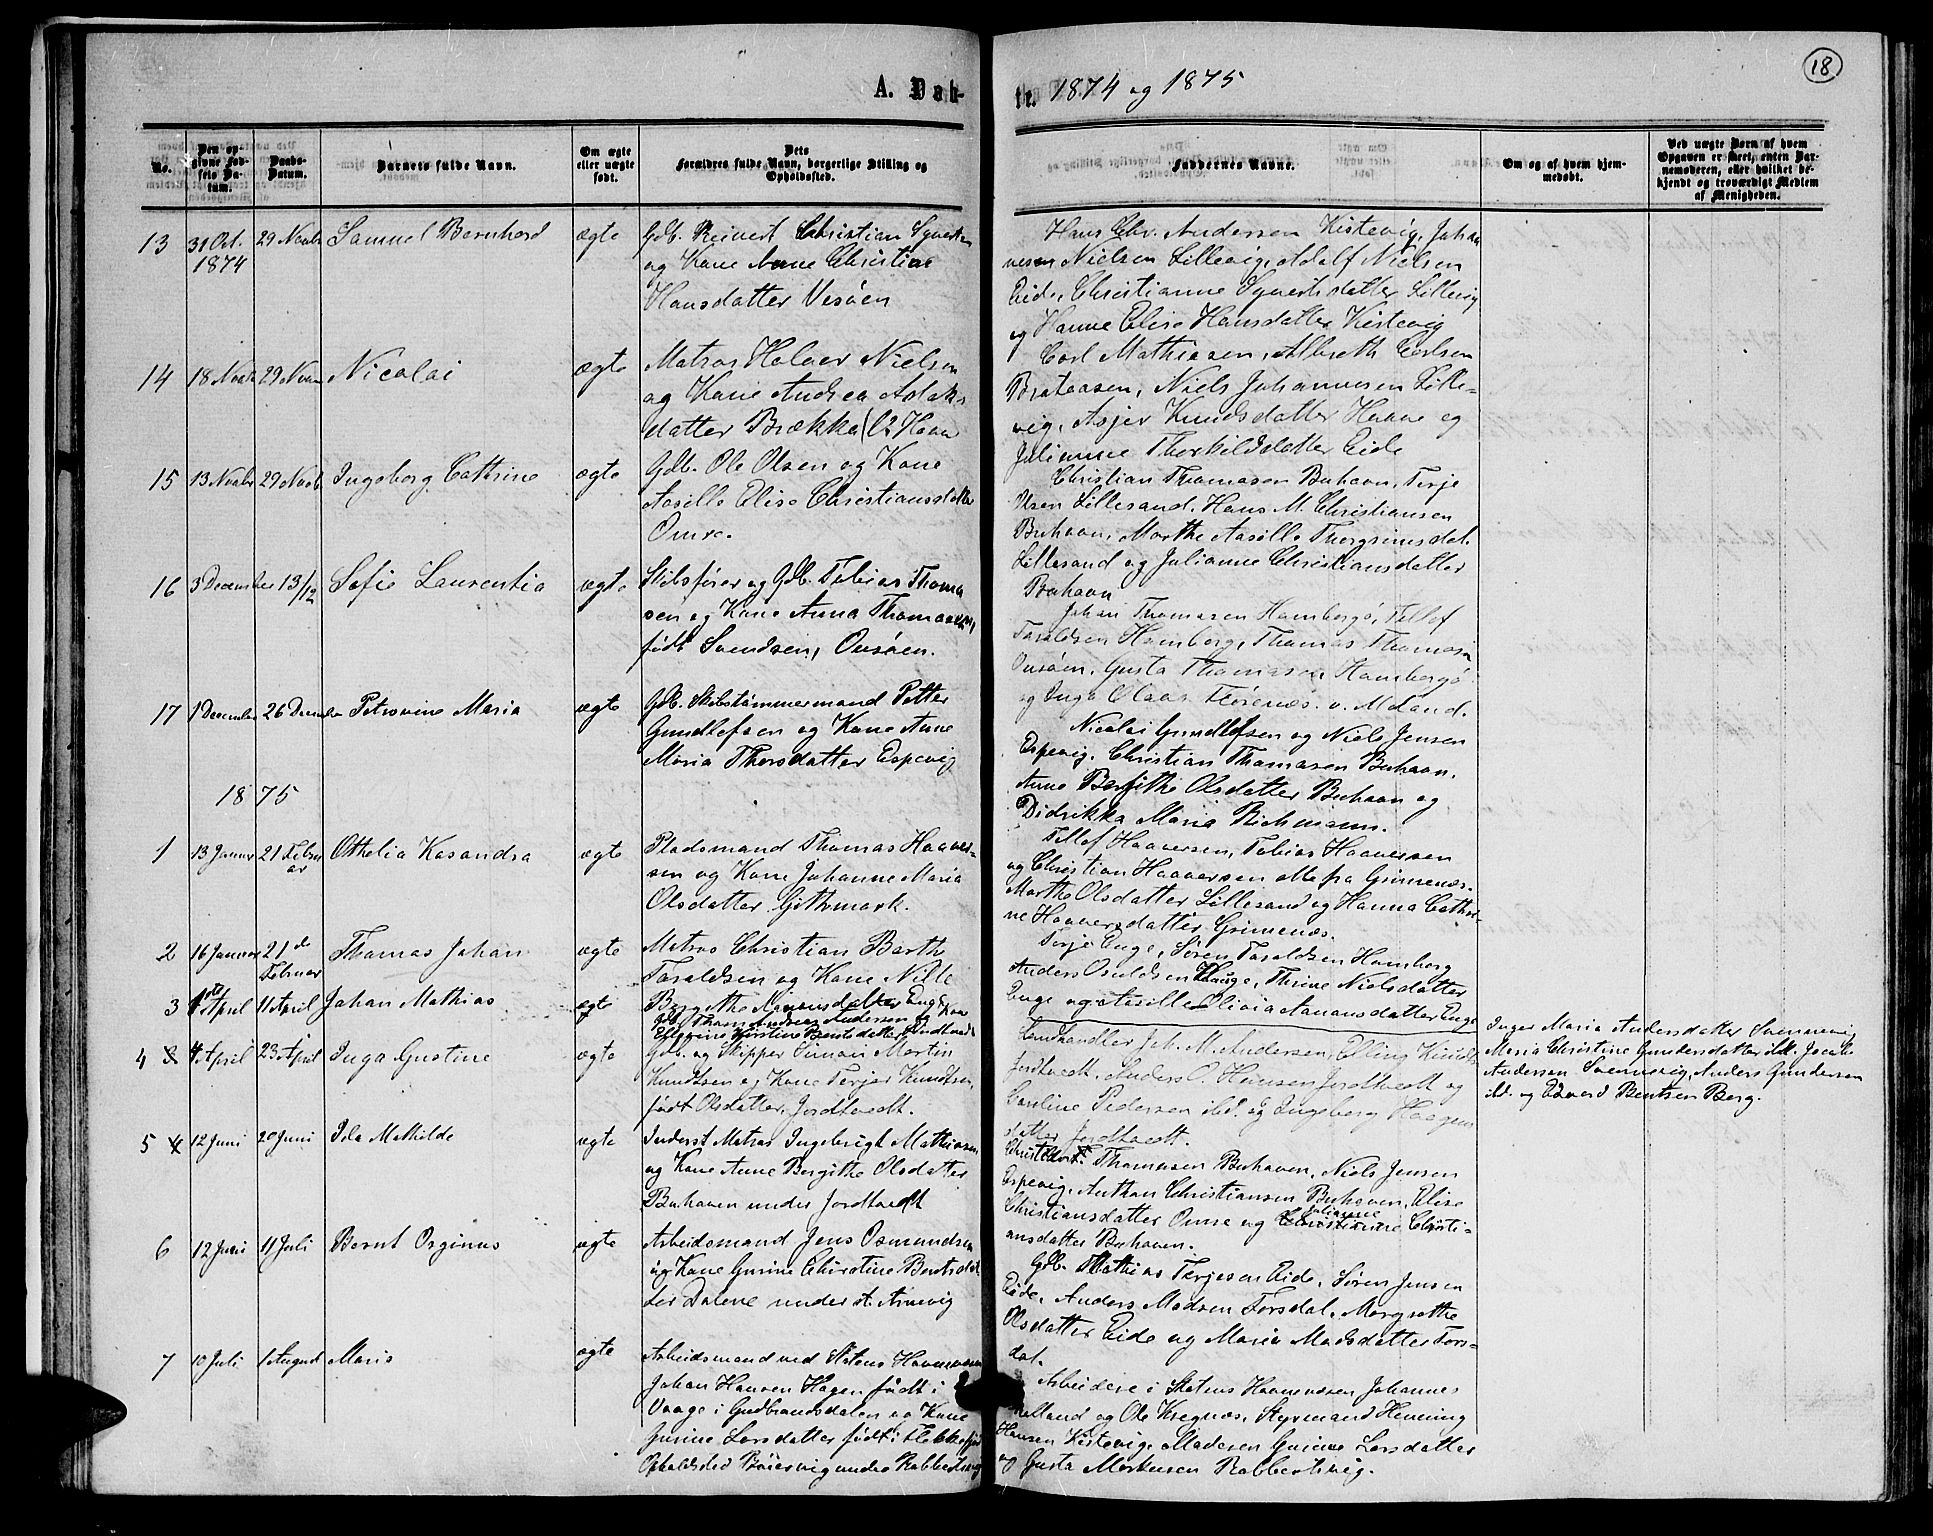 18
A. Daab-
tr. 1874 og 1875
No.
Den opgivne Fødsels Datum.
Daabs-Datum.
Barnets fulde Navn.
Om ægte eller uægte født.
Dets Forældres fulde Navn, borgerlige Stilling og Opholdssted.
Faddernes Navne.
Om og af hvem hjemmedøbt.
Ved uægte Børn af hvem Opgaven er skeet, enten Barnemoderen, eller hvilket bekjendt og troværdigt Medlem af Menigheden.
13 31 Oct. 1874 29 Novbr Samuel Bernhard ægte
Gdb. Reinert Christian Syvertsen
og Kone Anne Christine
Hansdatter Vesöen
Hans Chr. Andersen Kistevig, Johan
nesen Nielsen Lillevig, Adolf Nielsen
Eide, Christianne Syvertsdatter Lillevig
og Hanne Elise Hansdatter Kistevig
14 18 Novb 29 Novbr Nicolai ægte
Matros Halvor Nielsen
og Kone Andrea Adolfs
datter Brække
Carl Mathiesen, Albreth Carlsen
Brataasen, Niels Johannesen Lille-
vig, Asjer Knudsdatter Haave og
Julianne Thorkildsdatter Eide
15 13 Novbr 29 Novb Ingeborg Cathrine ægte
Gdb. Ole Olsen og Kone
Aasille Elise Christiansdatter
Omre.
Christian Thomasen Buhavn, Terje
Olsen Lillesand, Hans M. Christiansen
Buhavn, Marthe Aasille Thorgrimsdat.
Lillesand og Julianne Christiansdatter
Buhavn
16 3 December 13/12 Sofie Laurentia ægte
Skibsfører og Gdb. Tobias Thoma
sen og Kone Anna Thomasen,
født Svendsen, Ousöen.
Johan Thomasen Hombergö, Tellef
Taraldsen Homborg, Thomas Thomasen
Ousöen, Gusta Thomasen Hombergö
og Inga Olava Flörenæs v. Moland.
17 1 December 26 December Petrovine Maria ægte
Gdb. Skibstömmermand Petter
Gundlefsen og Kone Anne
Maria Thorsdatter Espevig
Nicolai Gundlefsen og Niels Jensen
Espevig, Christian Thomasen Buhavn,
Anne Bergithe Olsdatter Buhavn og
Didrikka Maria Richmann.
1875
1 13 Januar 21 Februar Othelia Kasandra ægte
Pladsmand Thomas Haaver-
sen og Kone Johanne Maria
Olsdatter Githmark.
Tellef Haaversen, Tobias Haaversen
og Christian Haaversen alle fra Grimenæs.
Marthe Olsdatter Lillesand og Hanna Cathri-
ne Haaversdatter Grimenæs.
2 16 Januar 21de Februar Thomas Johan ægte
Matros Christian Barth
Taraldsen og Kone Nille
Bergithe Aanensdatter Enge
Terje Enge, Søren Taraldsen Homborg
Anders Osuldsen Hauge, Thrine Nielsdatter
Enge og Aasille Olivia Aanonsdatter Enge
3 1ste April 11 April Johan Mathias ægte
Gdb. Thom Andreas Andersen og Kone
Elegine Kirstine Bentsdatter
Inger Maria Andersdatter Svennevig
Maria Christine Gundersdatter ibd. Jacob
Andersen Svennevig, Anders Gundersen
ibd. og Edvard Bentsen Berg.
4 4 April 23 April Inga Gustine ægte
Gdb. og Skipper Simon Martin
Knudtsen og Kone Terjer Knudtsen,
født Olsdatter, Jordtvedt.
Landhandler Joh. M. Andersen, Elling Knudts.
Jordtvedt, Anders O. Hansen Jordtvedt og
Caroline Pedersen ibd. og Ingeborg Haagens
datter Jordtvedt.
5 12 Juni 20 Juni Ida Mathilde ægte
Inderst Matros Ingebrigt Mathiasen
og Kone Anne Bergithe Olsdatter
Buhaven under Jordtvedt
Thomasen Buhaven, Niels Jensen
Espevig, Anthon Christiansen Buhaven, Elise
Christiansdatter Omre og Julianne Christi-
ansdatter Buhaven.
6 12 Juni 11 Juli Bernt Orginus ægte
Arbeidsmand Jens Osmundsen
og Kone Gurine Christine Bentsdat
ter Dalene under A. Arnevig
Gdb. Mathias Terjesen Eide, Søren Jensen
Eide, Anders Madsen Torsdal, Margrethe
Olsdatter Eide og Maria Madsdatter Tors-
dal.
7 10 Juli 1 August Maria ægte
Arbeidsmand ved Statens Havnevæsen
Johan Hansen Hagen født i
Vaage i Gudbrandsdalen og Kone
Gurine Larsdatter født i Flekkefjord
Opholdsted Böiesvig under Kobbertsvig
Arbeidere i Statens Havnevæsen Johannes
og Ole Kregnæs, Styrmand Henning
Hansen Kistevig, Madesen Gurine Larsdatter
og Gusta Markusen Kobbertsvig.